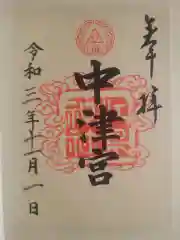 奉拝
中津宮
令和三年十一月一日